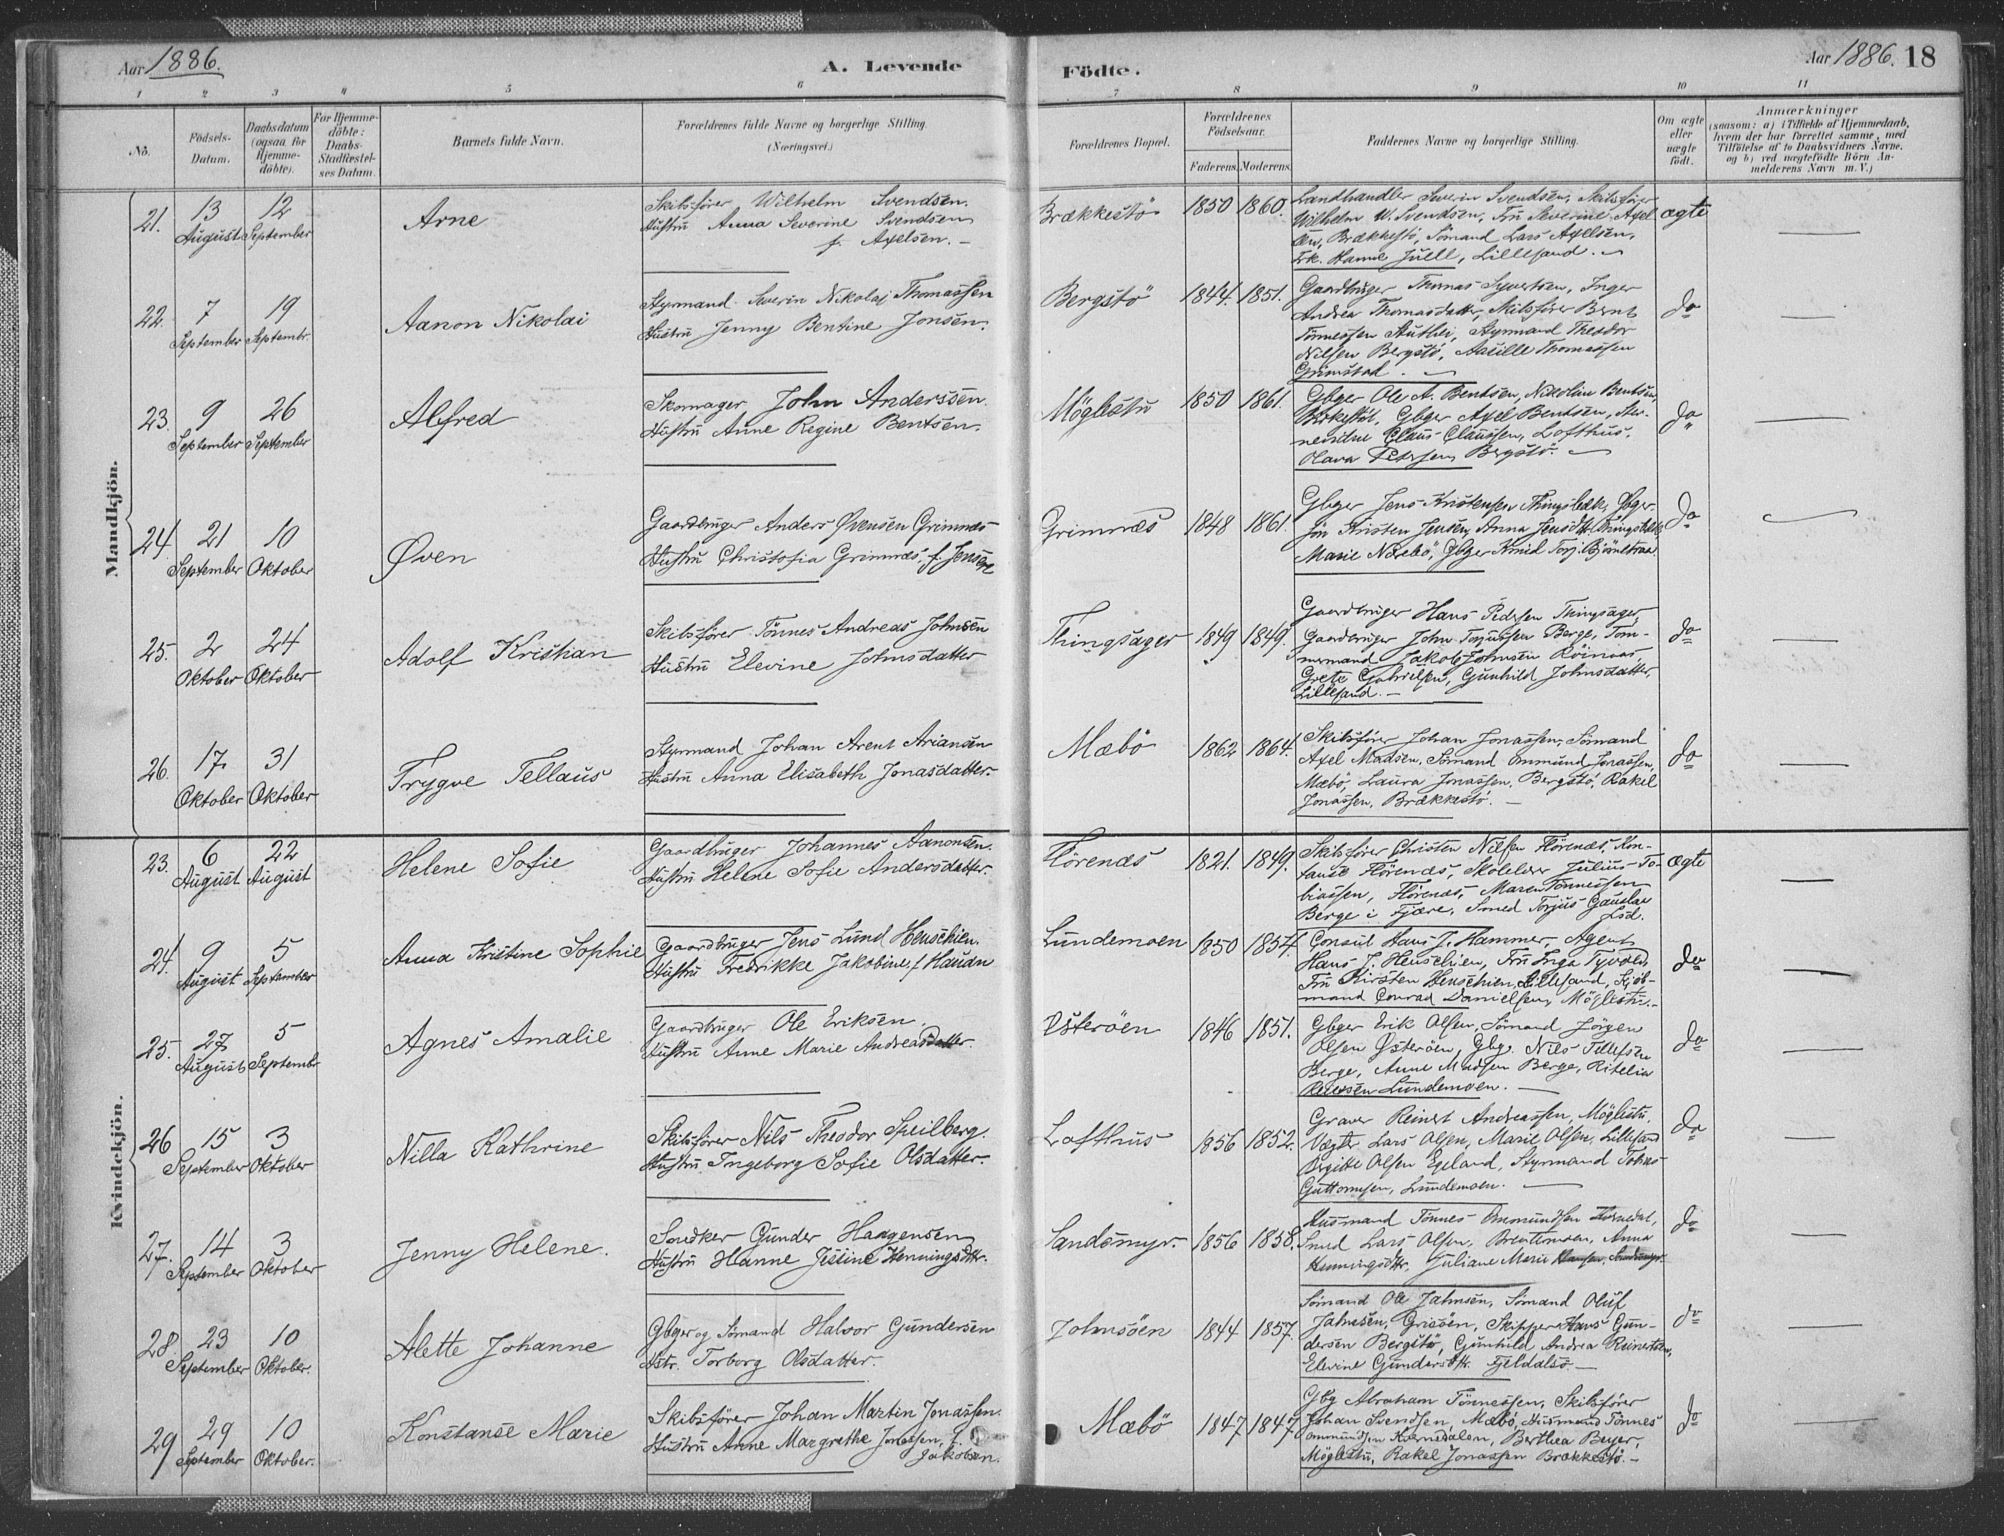 Aar 1886.
A. Levende
Födte.
Aar 1886. 18
1 2 3 4 5 6 7 8 9 10 11
No.
Födsels-
Datum.
Daabsdatum
(ogsaa for
Hjemme-
döbte).
For Hjemme-
döbte:
Daabs-
Stadfæstel-
ses Datum.
Barnets fulde Navn.
Forældrenes fulde Navne og borgerlige Stilling
(Næringsvei.)
Forældrenes Bopæl.
Forældrenes
Födselsaar.
Faderens. Moderens.
Faddernes Navne og borgerlige Stilling.
Om ægte
eller
uægte
födt.
Anmærkninger
(saasom: a) i Tilfælde af Hjemmedaab,
hvem der har forrettet samme, med
Tilföielse af to Daabsvidners Navne,
og b) ved uægtefödte Börn An-
melderens Navn m. V.)
Mandkjön.
21. 13 August 12 September
Arne
Skibsfører Wilhelm Svendsen.
Hustru Anna Severine Svendsen
f. Axelsen. —
Brækkestø 1850 1860.
Landhandler Severin Svendsen, Skibsfører
Wilhelm W. Svendsen, Fru Severine Axel
sen, Brækkestø, Sømand Lars Axelsen,
Frk. Hanne Juell, Lillesand. —
ægte
22. 7 September 19 Septembr.
Aanon Nikolai
Styrmand Severin Nikolaj Thomassen
Hustru Jenny Bentine Jonsen.
Bergstø 1844. 1851.
Gaardbruger Thomas Syvertsen, Inger
Andrea Thomasdatter, Skibsfører Bernt
Tønnessen , Styrmand Theodor
Nilsen Bergstø, Thomassen
Grimstad. —
do
23. 9 September 26 September
Alfred
Skomager John Anderssen.
Hustru Anne Regine Bentsen.
Møglestu 1850 1861.
Gbger Ole A. Bentsen, Nikoline Bentsen,
Gbger Axel Bentsen,
Claus Claussen, Lofthus,
Olava Petersen, Bergstø. —
do
24. 21 September 10 Oktober
Øven
Gaardbruger Anders Øvensen Grimnes
Hustru Christofia Grimnæs f. Jensen
Grimnæs 1848 1861.
Gbger Jens Kristensen Thingsbæk, Gbger
søn Kristen Jensen, Anna Jensdtr. Thingsbæk,
Marie Nørebø, Gbger Knud Torj.
do
25. 2 Oktober 24 Oktober
Adolf Kristian
Skibsfører Tønnes Andreas Johnsen
Hustru Elevine Johnsdatter
Thingsager 1849 1849.
Gaardbruger Hans Pedersen Thingsager,
Gaardbruger John Berge, Tøm-
mermand Jakob Johnsen Röinaas,
Grete Gabrielsen, Gunhild Johnsdatter,
Lillesand. —
do
26. 17. Oktober 31 Oktober
Trygve Tellaus
Styrmand Johan Arent Ariansen
Hustru Anna Elisabeth Jonasdatter.
Mæbø 1862 1864.
Skibsfører Johan Jonassen, Sømand
Axel Madsen, Sømand Ommund Jonassen,
Mæbø, Laura Jonassen, Bergstø, Rakel
Jonassen, Brækkestø. —
do
Kvindekjön.
23. 6 August 22 August
Helene Sofie
Gaardbruger Johannes Aanonsen.
Hustru Helene Sofie Andersdatter.
Flörenæs 1821. 1849.
Skibsfører Christen Nilsen Flörenæs, Kon-
stanse Flörenæs, Skolelær Julius To-
biassen, Flörenæs, Maren Tønnessen
Berge i Fjære, Smed Torjus
Lsd.
ægte
24. 9 August 5 September
Anna Kristine Sophie
Gaardbruger Jens Lund Henschien.
Hustru Fredrikke Jakobine, f.
Lundemoen 1850 1854.
Consul Hans J. Hammer, Agent
Hans J. Henschien, Fru Inga Tyvold,
Fru Kirsten Henschien, Lillesand, Kjøb-
mand Conrad Danielsen, Møglestu. —
do
25. 27. August 5 Septembr
Agnes Amalie
Gaardbruger Ole Eriksen.
Hustru Anne Marie Andreasdatter.
Østerøen 1846 1851.
Gbger Erik Olsen, Sømand Jørgen
Olsen Østerøen, Gbg. Nils Tellefsen
Berge, Anne Madsen Berge,
Lundemoen. —
do
26 15 September 3 Oktober
Nilla Kathrine
Skibsfører Nils Theodor Speilberg.
Hustru Ingeborg Sofie Olsdatter.
Lofthus 1856 1852.
Graver Reinert Andreassen, Møglestu,
Lars Olsen, Marie Olsen, Lillesand
Birgitte Olsen Egeland, Styrmand Tobias
Guttormsen, Lundemoen. —
do
27. 14 September 3 Oktober
Jenny Helene.
Snedker Gunder Haagensen
Hustru Hanne Jesine Henningsdtr.
Sandsmyr. 1856 1858.
Husmand Tønnes Ommundsen
Smed Lars Olsen, Anna
Henningsdtr, Juliane Marie Hansen,
do
28. 23 September 10 Oktober.
Alette Johanne
Gbger og Sømand Halvor Gundersen
Hstr. Torborg Olsdatter.
Johnsöen 1844 1857.
Sømand Ole Jahnsen, Sømand Oluf
Jahnsen, Grisöen, Skipper Hans Gun-
dersen Bergstø, Gunhild Andrea Reinertsen,
Elevine Gundersdtr. Fjeldalsø. —
do
29 29 September 10 Oktober.
Konstanse Marie
Skibsfører Johan Martin Jonassen.
Hustru Anne Margrethe Jonassen, f.
Jakobsen.
Mæbø 1847 1847
Gbg Abraham Tønnessen, Skibsfører
Johan Svendsen, Mæbø, Husmand Tønnes
Ommundsen , Berthea Beyer,
Møglestu, Rakel Jonassen Brækkestø. —
do